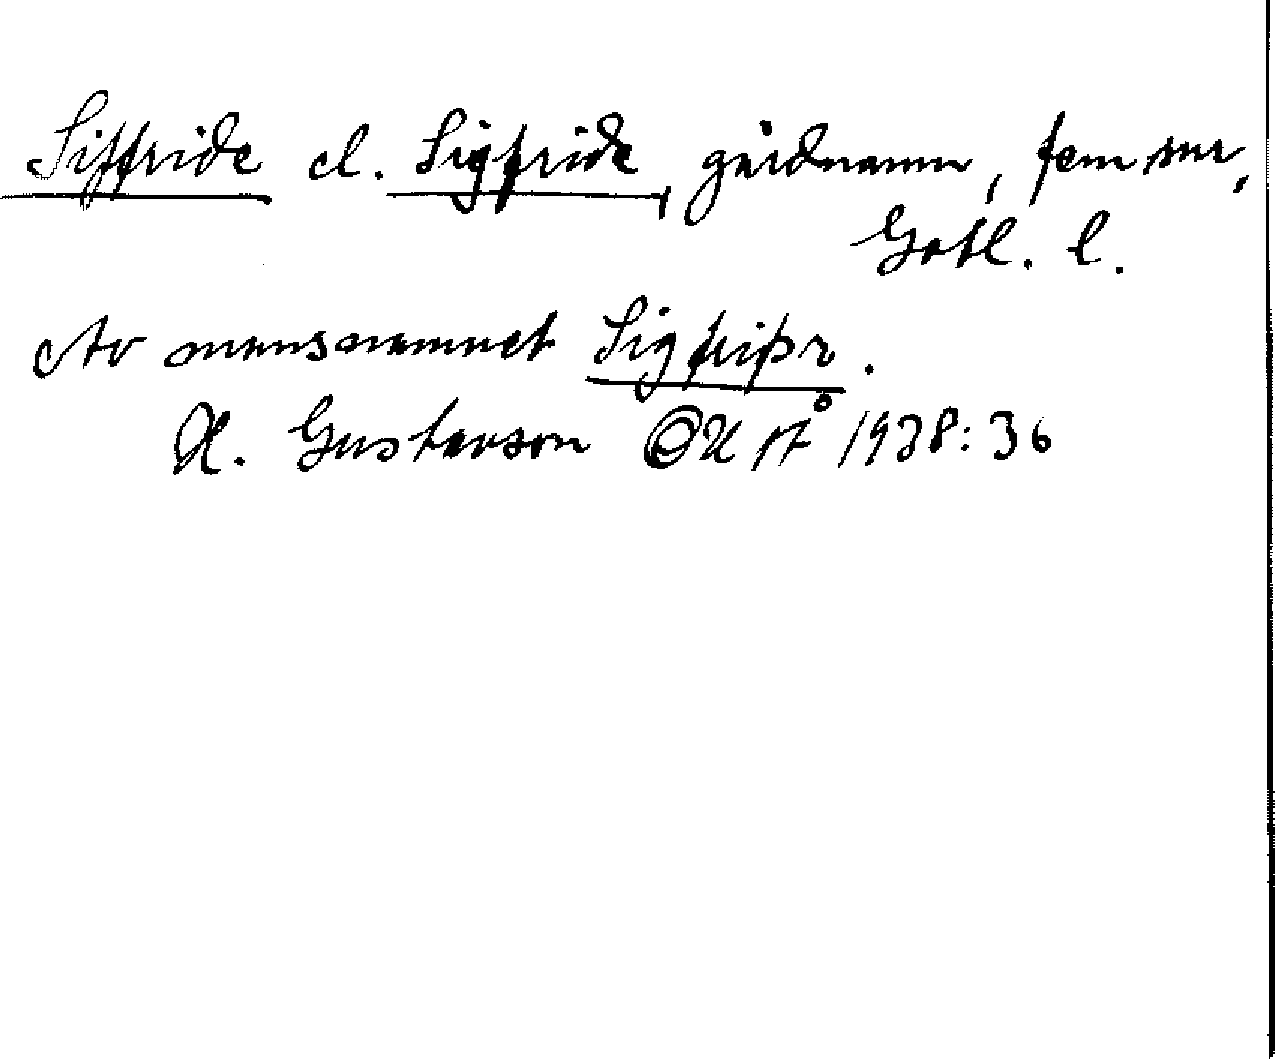 Siffride el. Sigfride, gårdnamn, fem snr,
Gotl. l.
Av mansnamnet Sigfriþr.
H. Gustavson 1938:36